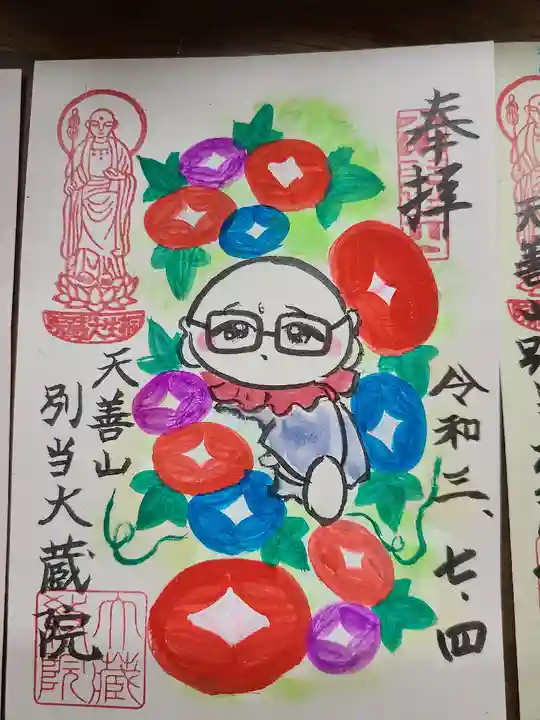 奉拝
令和三、七・四
天善山
別当大蔵院
大蔵院